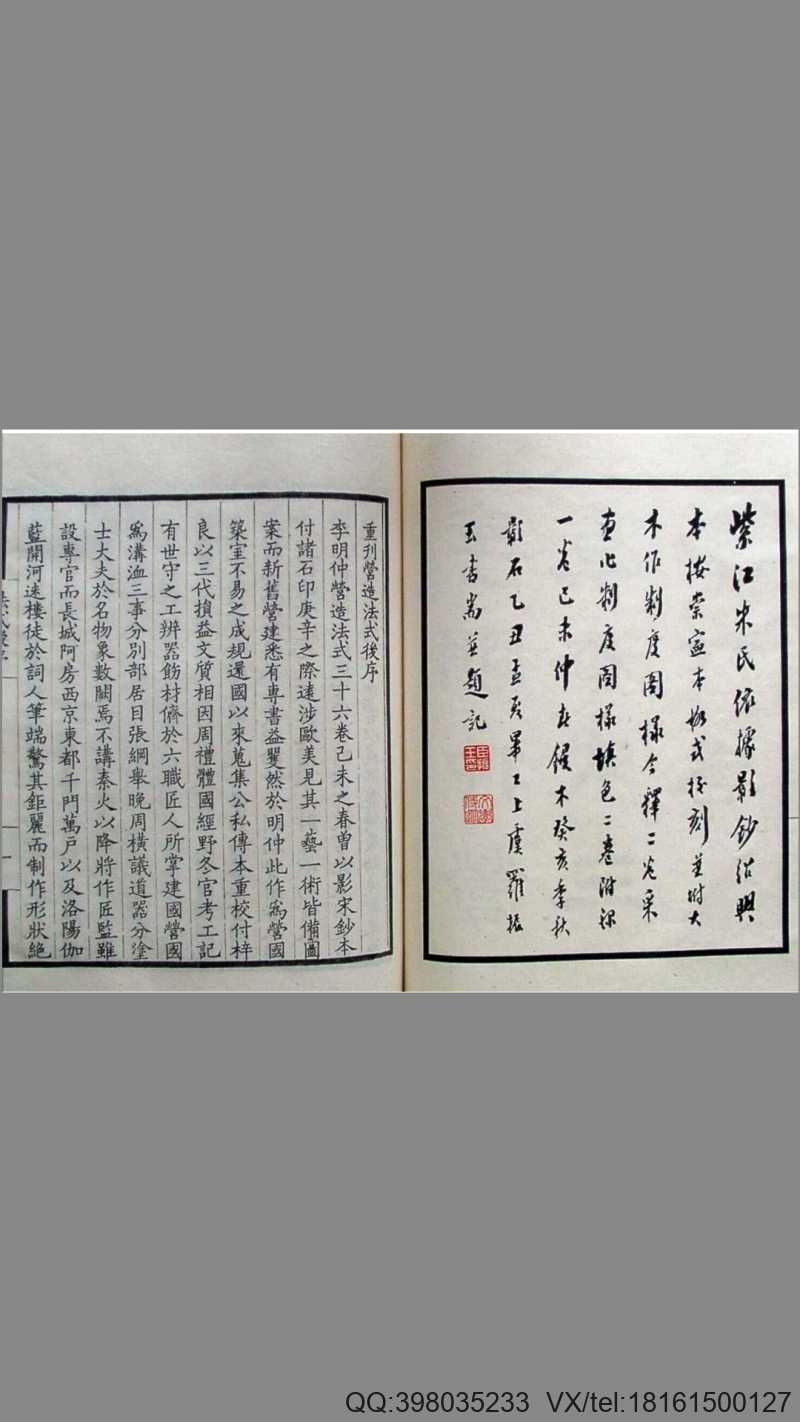 紫江朱氏依據影鈔紹興
本按崇寧本格式校刻並坿大
木作制度圖樣今釋二卷采
畫作制度圖樣填色二卷坿錄
一卷己未仲春鋟木癸亥季秋
彰石乙丑孟夏畢工上虞羅振
玉書耑並題記
重刊營造法式後序
李明仲營造法式三十六卷己未之春曾以影宋鈔本
付諸石印庚辛之際遠涉歐美見其一藝一術皆備圖
案而新舊營建悉有專書益矍然於明仲此作爲營國
築室不易之成規還國以來蒐集公私傳本重校付梓
良以三代損益文質相因周禮體國經野冬官考工記
有世守之工辨器飭材儕於六職匠人所掌建國營國
爲溝洫三事分別部居目張綱舉晚周橫議道器分塗
士大夫於名物象數闕焉不講秦火以降將作匠監雖
設專官而長城阿房西京東都千門萬戶以及洛陽伽
藍開河迷樓徒於詞人筆端驚其鉅麗而制作形狀絕
QQ:398035233 VX/tel:18161500127